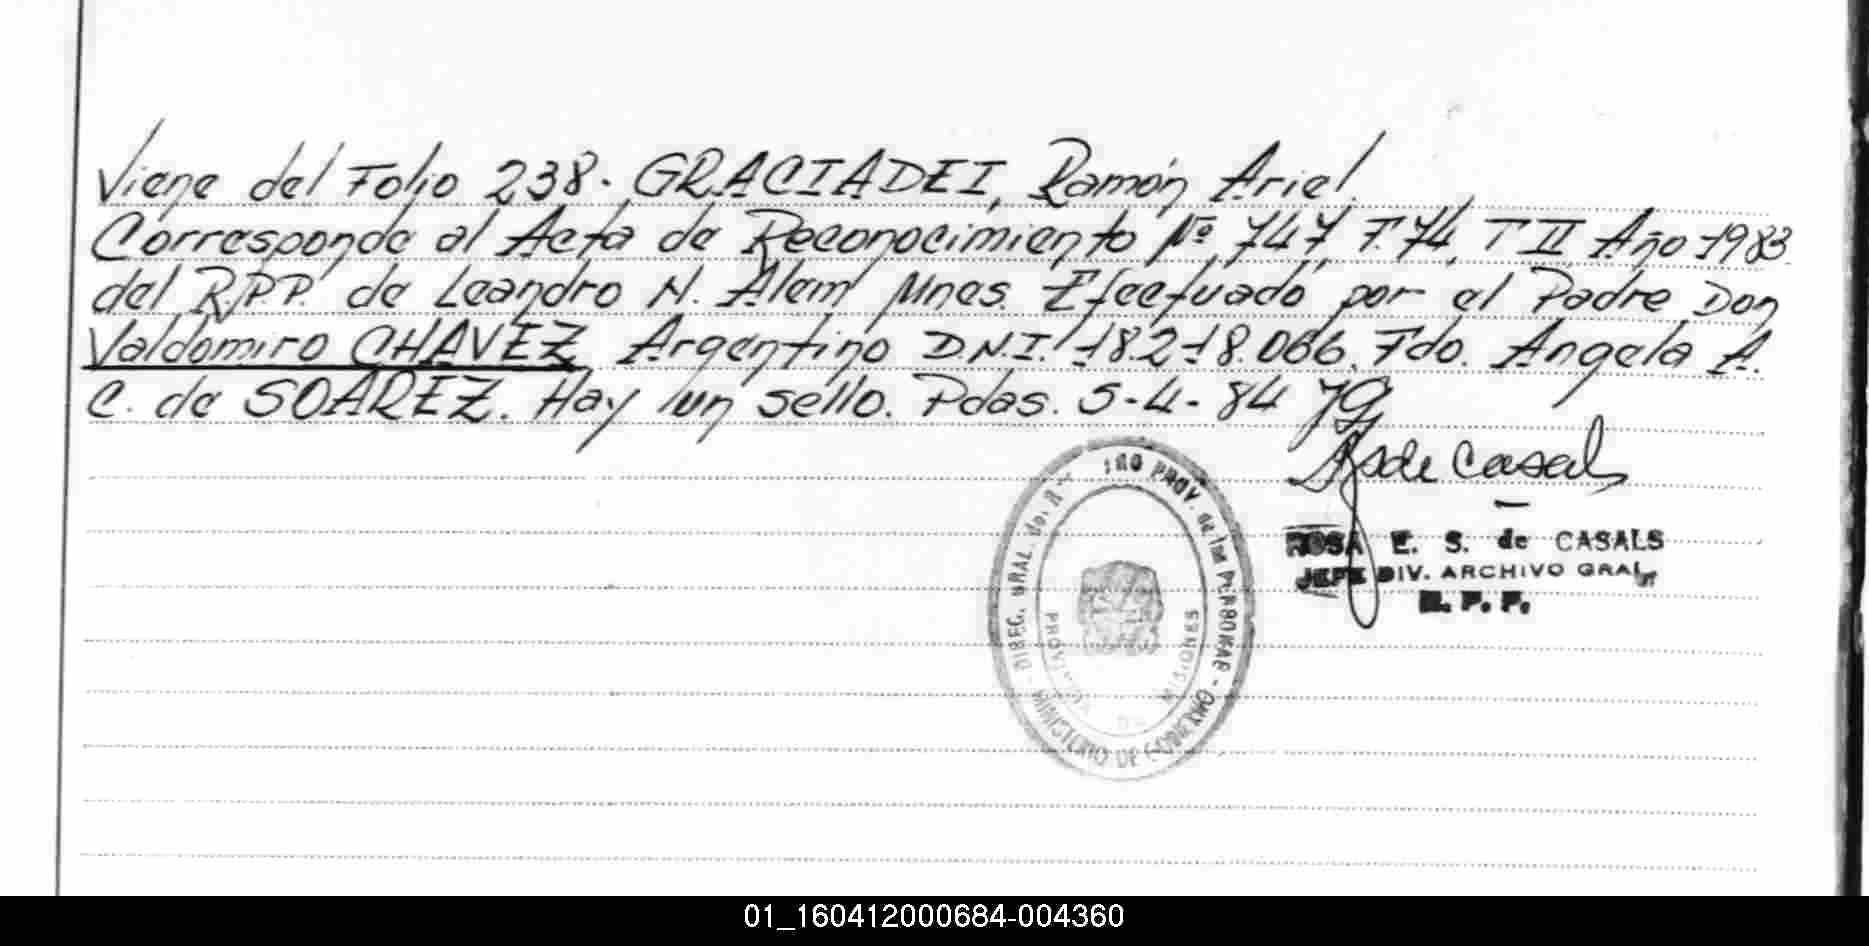 Viene del Folio 238. GRACIADEI, Ramón Ariel.
Corresponde al Acta de Reconocimiento Nº 747, F. 74, T II Año 1983
del R.P.P. de Leandro N. Alem Mnes. Efectuado por el Padre Don
Valdomiro CHAVEZ Argentino D.N.I. 18.218.066. Fdo. Angela A.
C. de SOAREZ. Hay un sello. Pdas. 5-4-84
de Casals
ROSA E. S. de CASALS
JEFE DIV. ARCHIVO GRAL.
R. P. P.
DIREC. GRAL. del PROV. de las PERSONAS - MINISTERIO DE GOBIERNO
PROVINCIA DE MISIONES
01_160412000684-004360